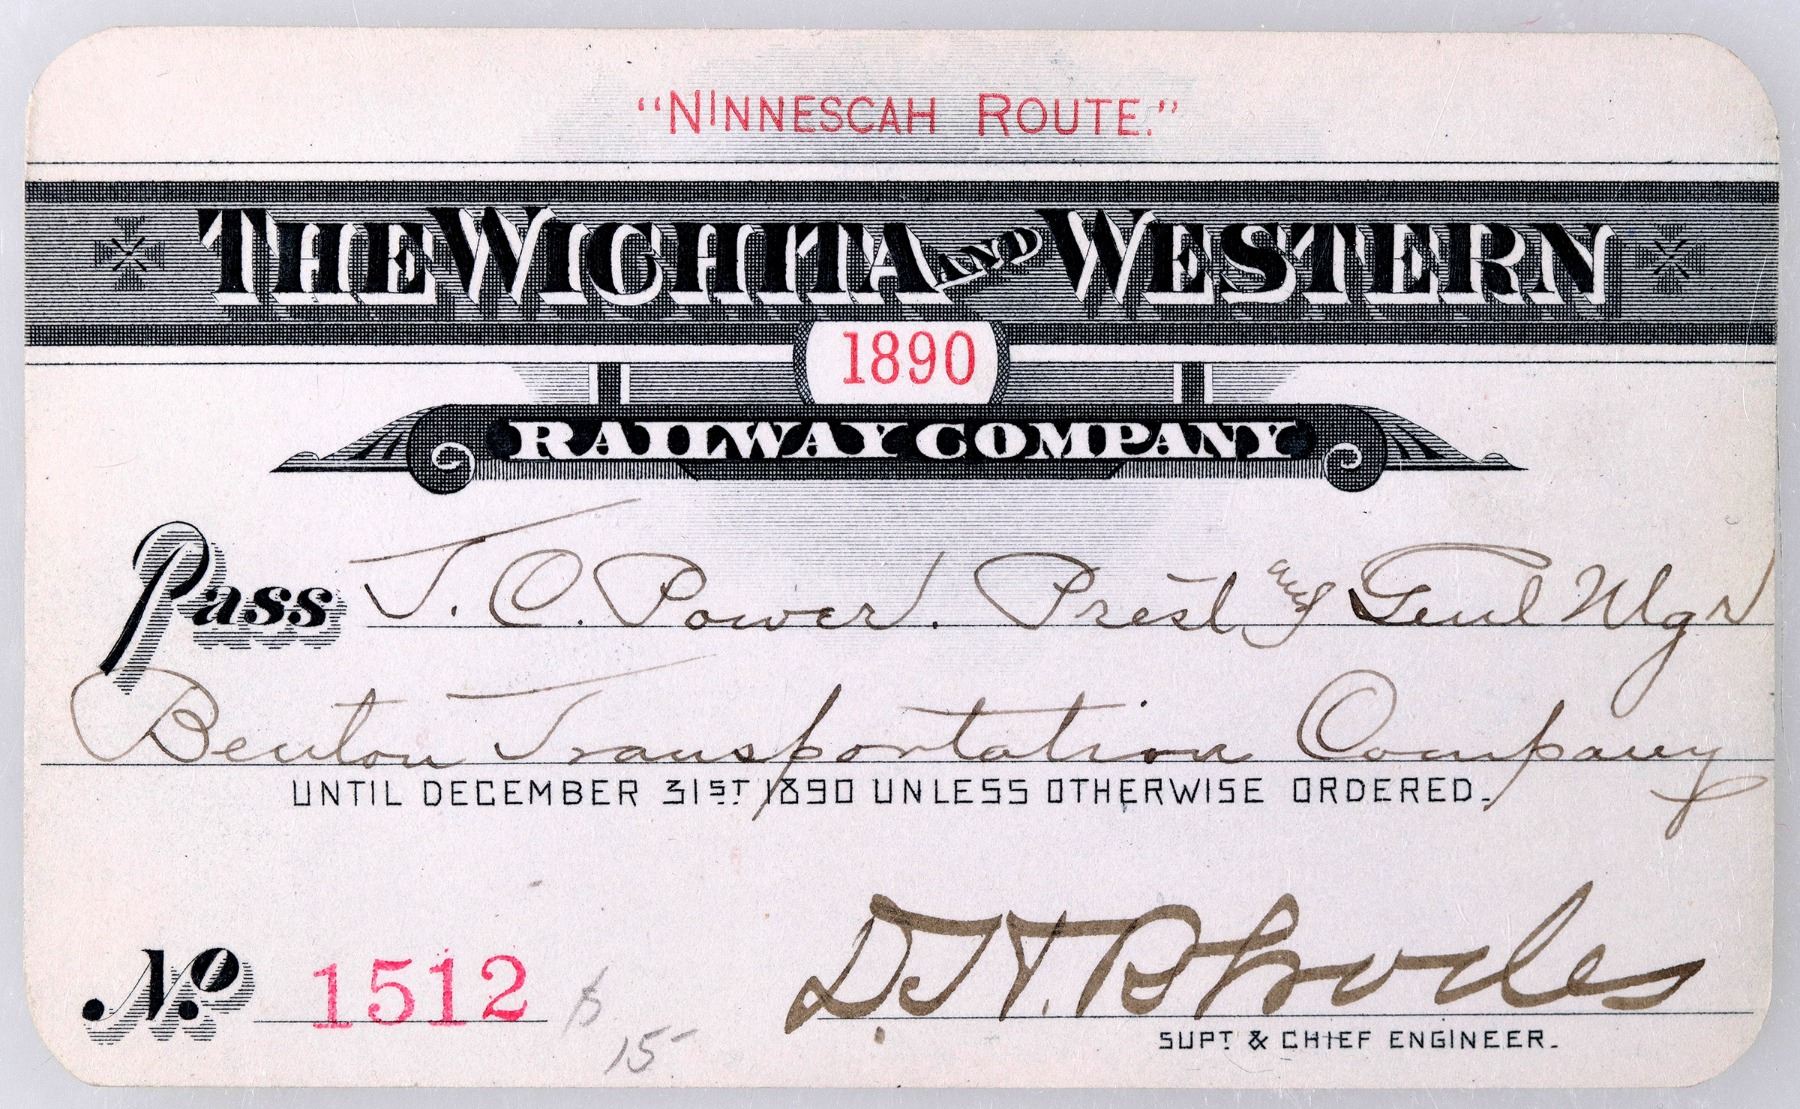 "NINNESCAH ROUTE."
THE WICHITA AND WESTERN
1890
RAILWAY COMPANY
Pass T. C. Power. Prest and Genl Mgr
Benton Transportation Company
UNTIL DECEMBER 31ST 1890 UNLESS OTHERWISE ORDERED.
No. 1512
$15-
D. H. Rhodes
SUPT & CHIEF ENGINEER.